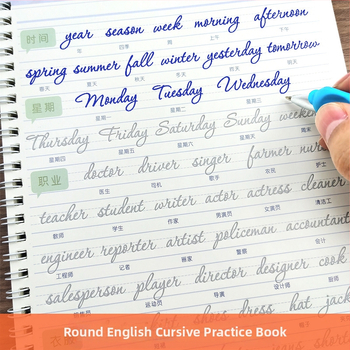 时间
year season week morning afternoon
年 四季 周 上午 下午
spring summer fall winter yesterday tomorrow
春天 夏天 秋天 冬天 昨天 明天
星期
Monday Tuesday Wednesday
星期一 星期二 星期三
Thursday Friday Saturday Sunday
星期四 星期五 星期六 星期日
职业
doctor driver singer farmer nurse
医生 司机 歌手 农民 护士
teacher student writer actor actress cleaner
教师 学生 作家 男演员 女演员 清洁工
engineer reporter artist policeman accountant
工程师 记者 画家 警察 会计
salesperson player director designer cook
运动员 导演 设计师 厨师
shoes dress hat jack
Round English Cursive Practice Book